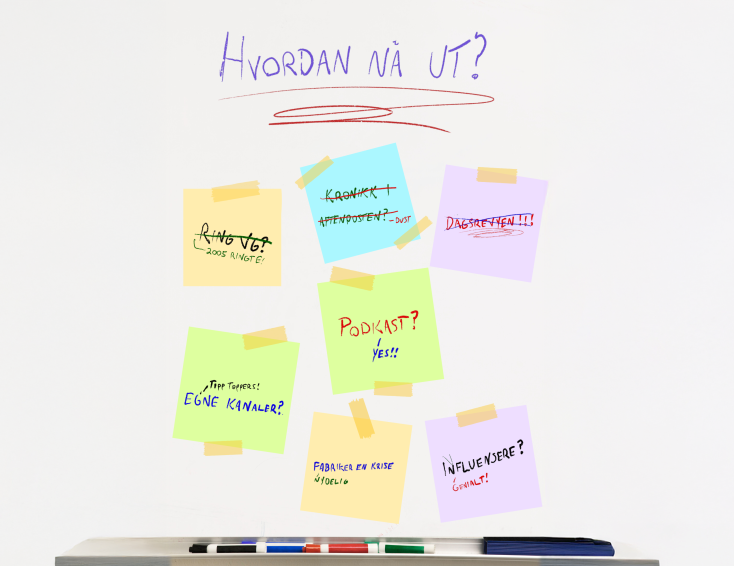 HVORDAN NÅ UT?
RING VG?
2005 RINGTE!
KRONIKK I
AFTENPOSTEN? - DUST
DAGSREVYEN!!!
PODKAST?
YES!!
TIPP TOPPERS!
EGNE KANALER?
FABRIKER EN KRISE
NYDELIG
INFLUENSERE?
GENIALT!